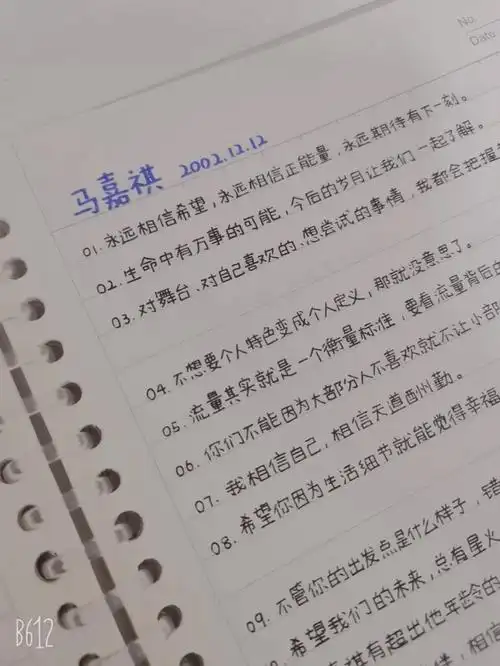 No.
Date
马嘉祺 2002.12.12
01. 永远相信希望，永远相信正能量，永远期待有下一刻。
02. 生命中有万事的可能，今后的岁月让我们一起了解。
03. 对舞台、对自己喜欢的、想尝试的事情，我都会把握
04. 不想要个人特色变成个人定义，那就没意思了。
05. 流量其实就是一个衡量标准，要看流量背后的
06. 你们不能因为大部分人不喜欢就不让小部
07. 我相信自己，相信天道酬勤。
08. 希望你因为生活细节就能觉得幸福
09. 不管你的出发点是什么样子，错
希望我们的未来，总有星火
祺有超出他年龄的
相信
B612